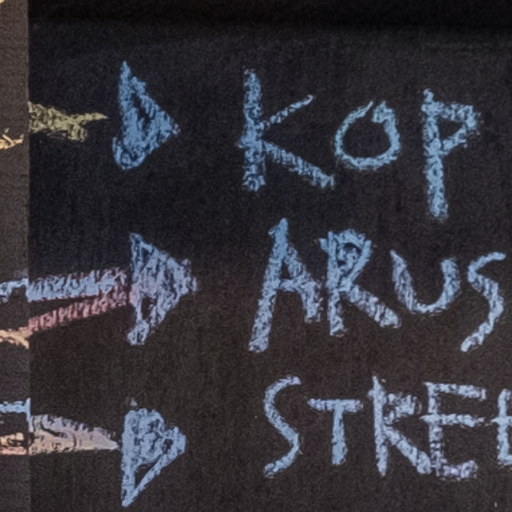 KOP
ARUS
STREE